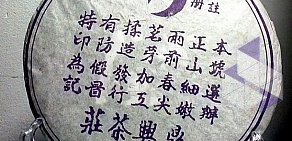 註册
本號選辦
正山細嫩
雨前春尖
茗芽加工
揉造發行
有防假冒
特印為記
鼎興茶莊